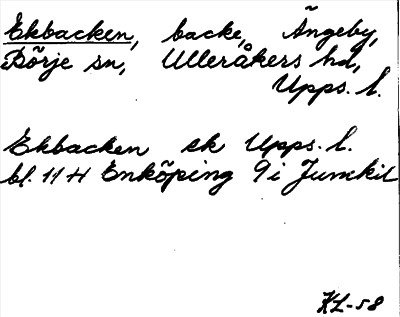 Ekbacken, backe, Ängeby,
Börje sn, Ulleråkers hd,
Upps. l.
Ekbacken ek Upps. l.
bl. 11 H Enköping 9 i Jumkil
KL-58